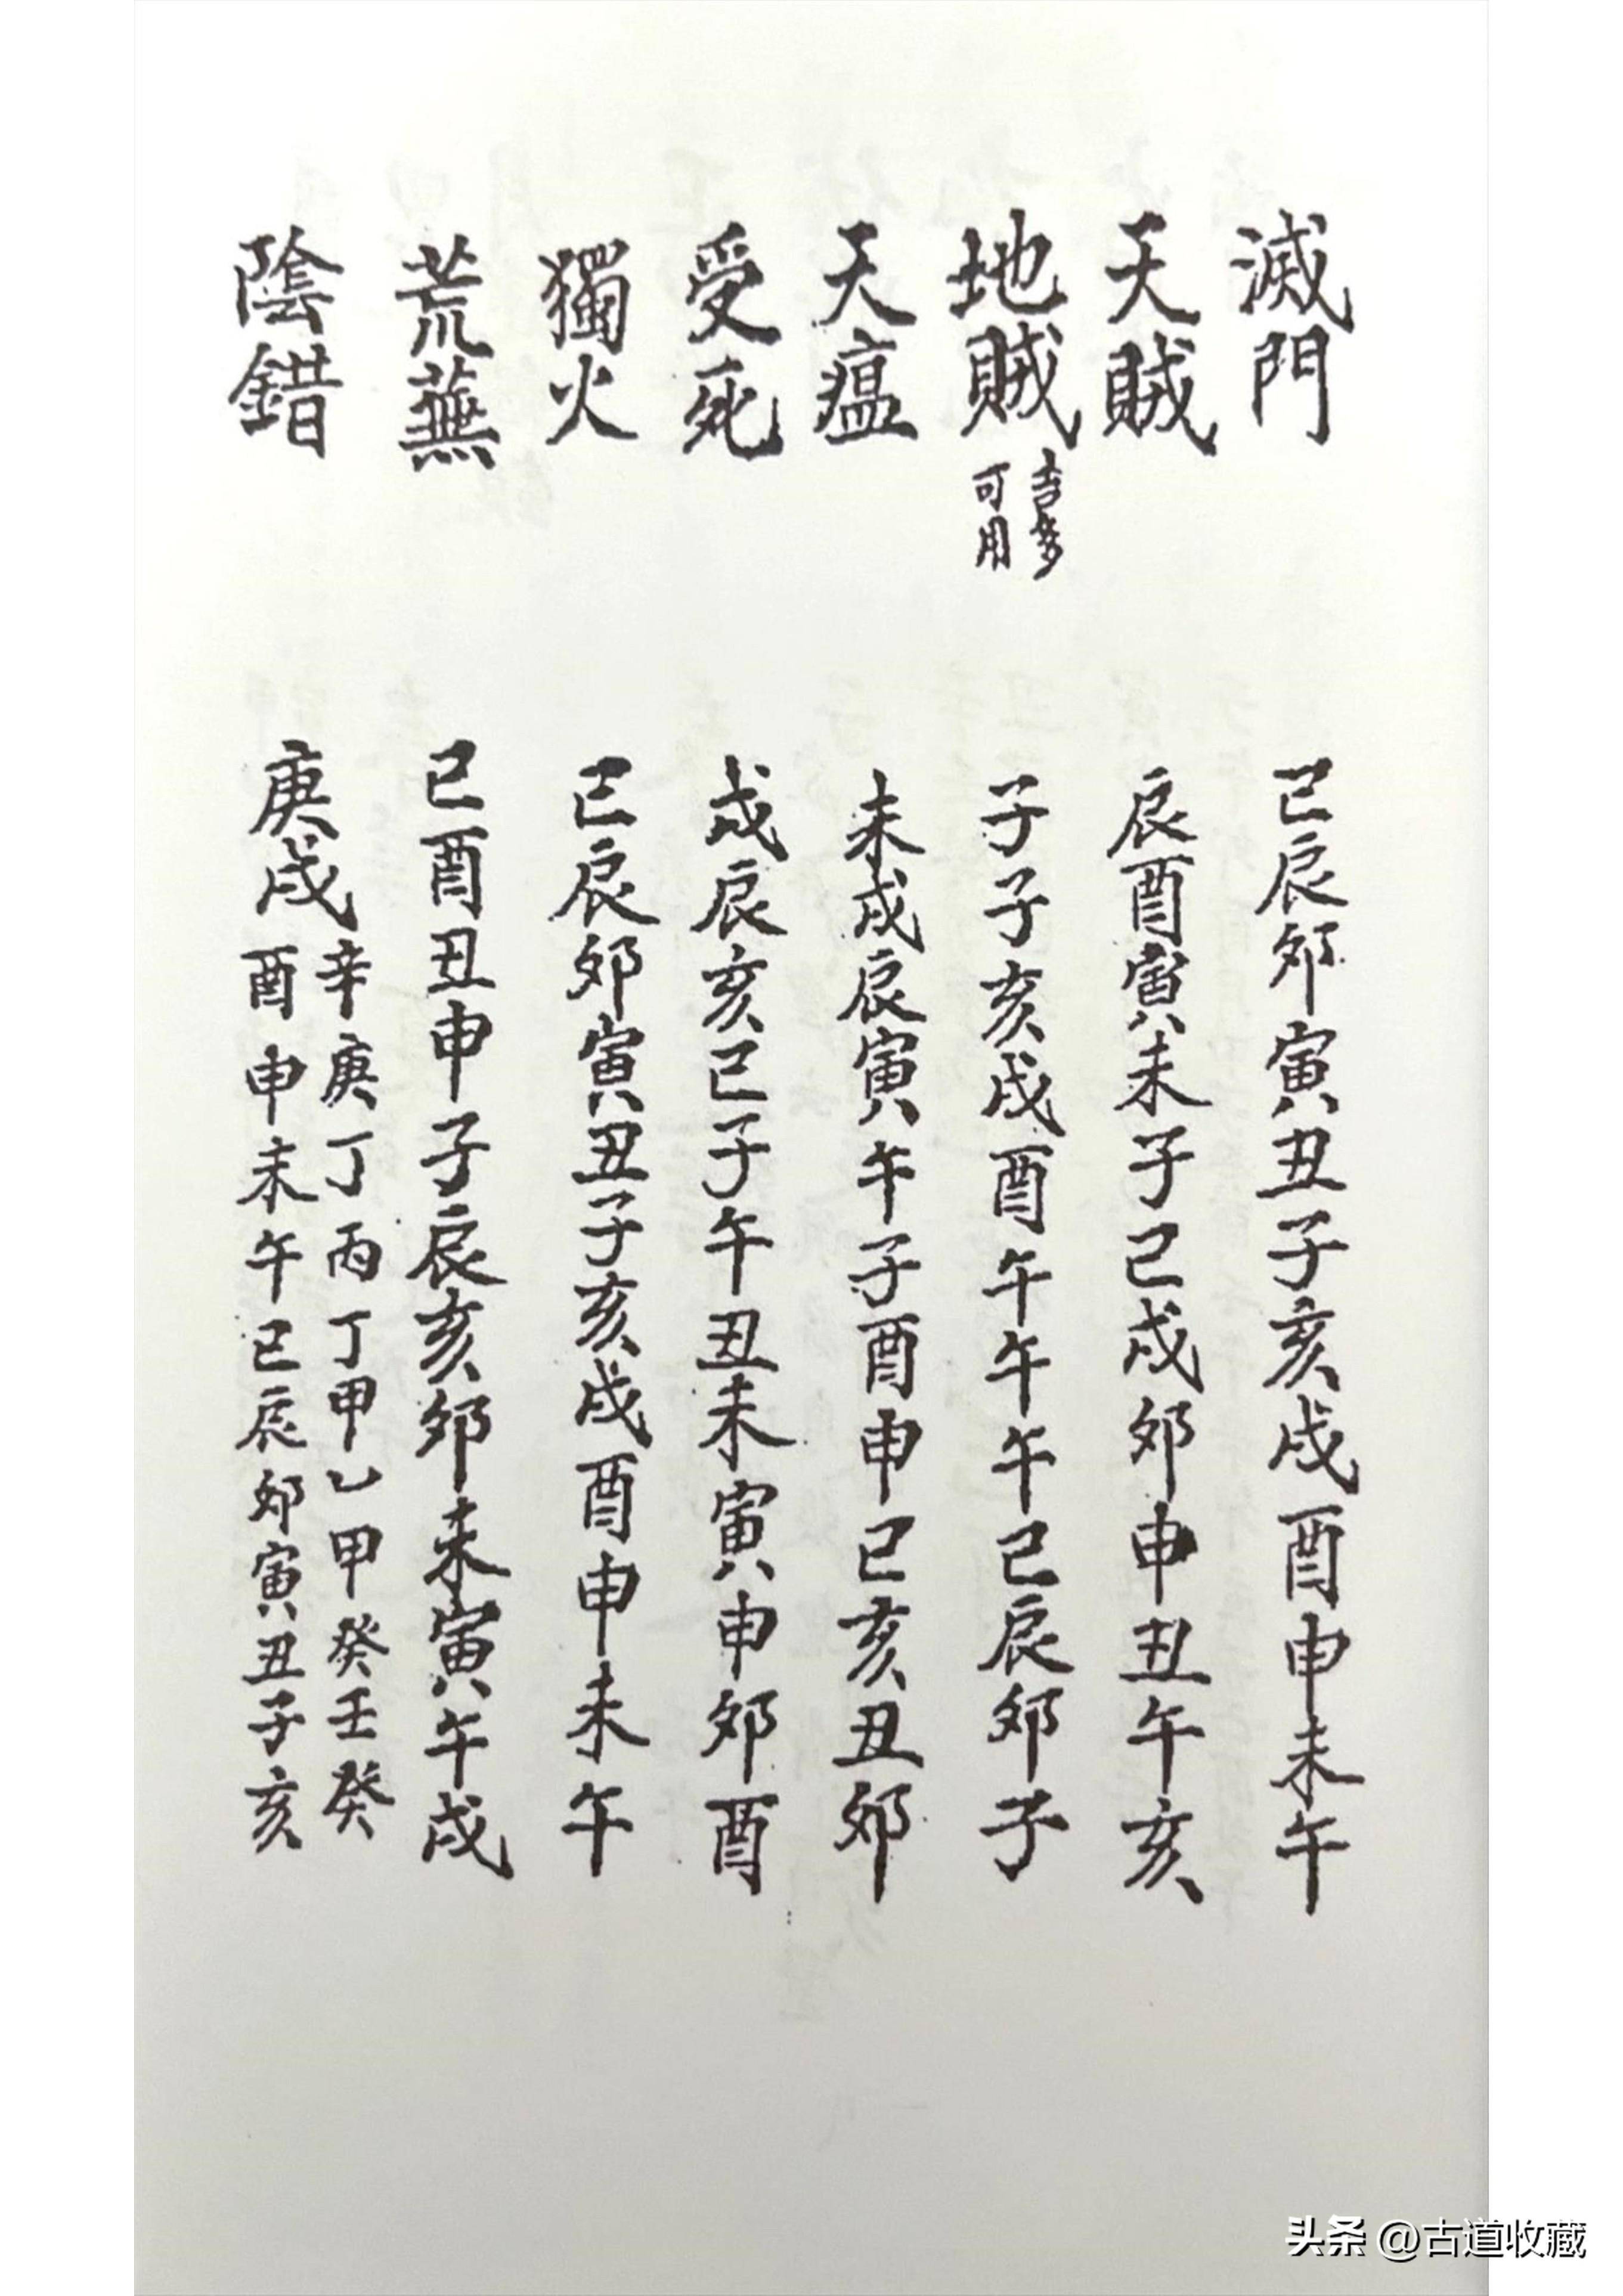 滅門 巳辰卯寅丑子亥戌酉申未午
天賊 辰酉寅未子巳戌卯申丑午亥
地賊 吉多可用 子子亥戌酉午午午巳辰卯子
天瘟 未戌辰寅午子酉申巳亥丑卯
受死 戌辰亥巳子午丑未寅申卯酉
獨火 巳辰卯寅丑子亥戌酉申未午
荒蕪 巳酉丑申子辰亥卯未寅午戌
陰錯 庚戌 辛庚丁丙丁甲乙甲癸壬癸
酉申未午巳辰卯寅丑子亥
头条 @古道收藏